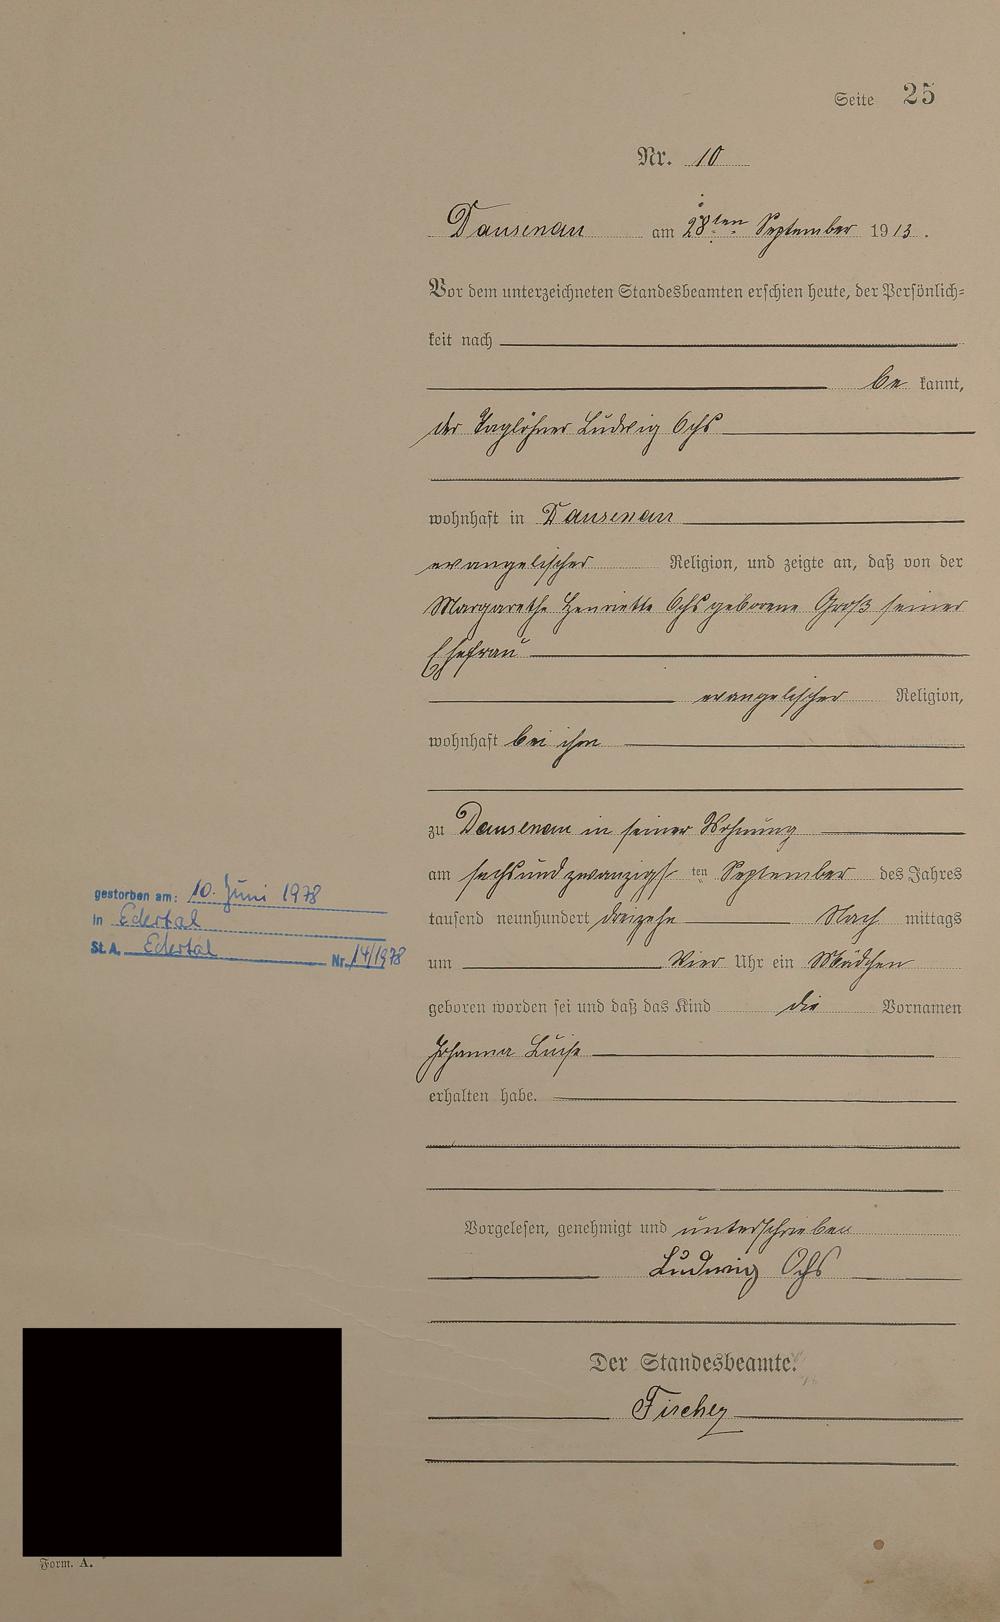 Seite 25
Nr. 10
Dausenau am 28ten September 1913.
Vor dem unterzeichneten Standesbeamten erschien heute, der Persönlich=
keit nach
be kannt,
der Taglöhner Ludwig Ochs
wohnhaft in Dausenau
evangelischer Religion, und zeigte an, daß von der
Margarethe Henriette Ochs geborene Groß seiner
Ehefrau
evangelischer Religion,
wohnhaft bei ihm
zu Dausenau in seiner Wohnung
am sechsundzwanzigs ten September des Jahres
tausend neunhundert dreizehn Nach mittags
um Vier Uhr ein Mädchen
geboren worden sei und daß das Kind die Vornamen
Johanna Luise
erhalten habe.
gestorben am: 10. Juni 1978
in Edertal
St. A. Edertal Nr. 14/1978
Vorgelesen, genehmigt und unterschrieben
Ludwig Ochs
Der Standesbeamte.
Fischer
Form. A.